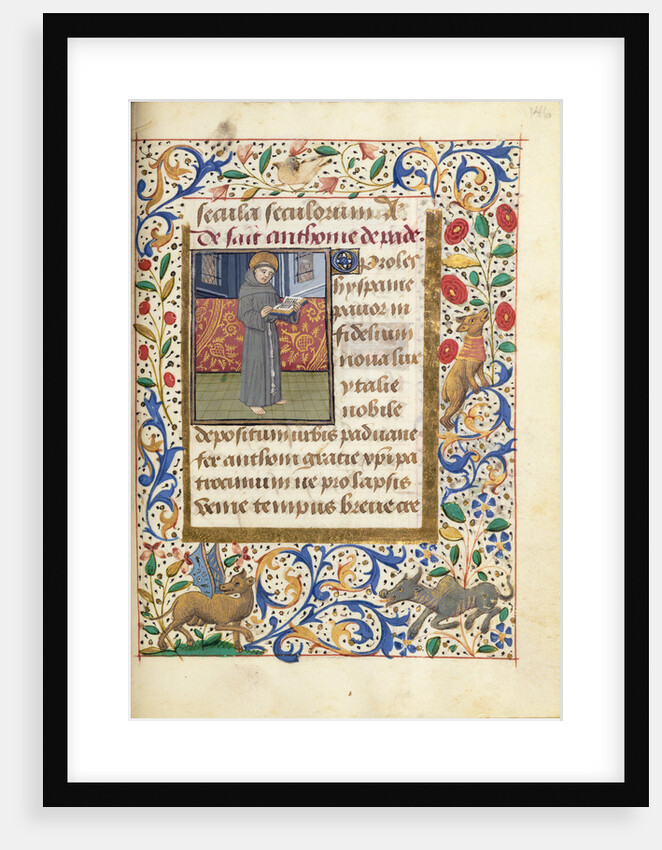 146
secula seculorum A
De sait anthoine de pade.
O Proles
hyspanie
pauor in
fidelium
noua lux
ytalie
nobile
depositum urbis paduane
fer anthoni gracie xpi pa
trocinium ne prolapsis
venie tempus breue cre